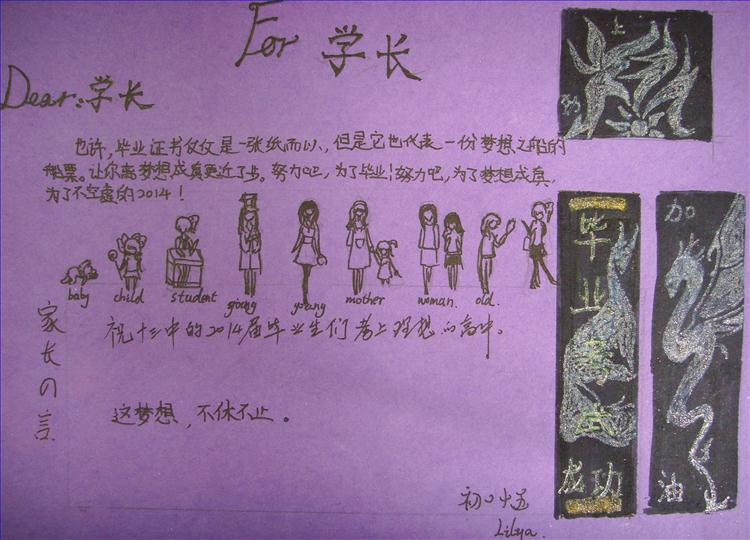 For 学长
Dear:学长
也许,毕业证书仅仅是一张纸而以,但是它也代表一份梦想之船的
船票。让你离梦想成真更近了步。努力吧,为了毕业!努力吧,为了梦想成真,
为了不空虚的2014!
baby child student young young mother woman. old.
祝十三中的2014届毕业生们考上理想的高中。
家长の言
这梦想,不休不止。
初
Lilya.
上
毕业考试
成功
加
油